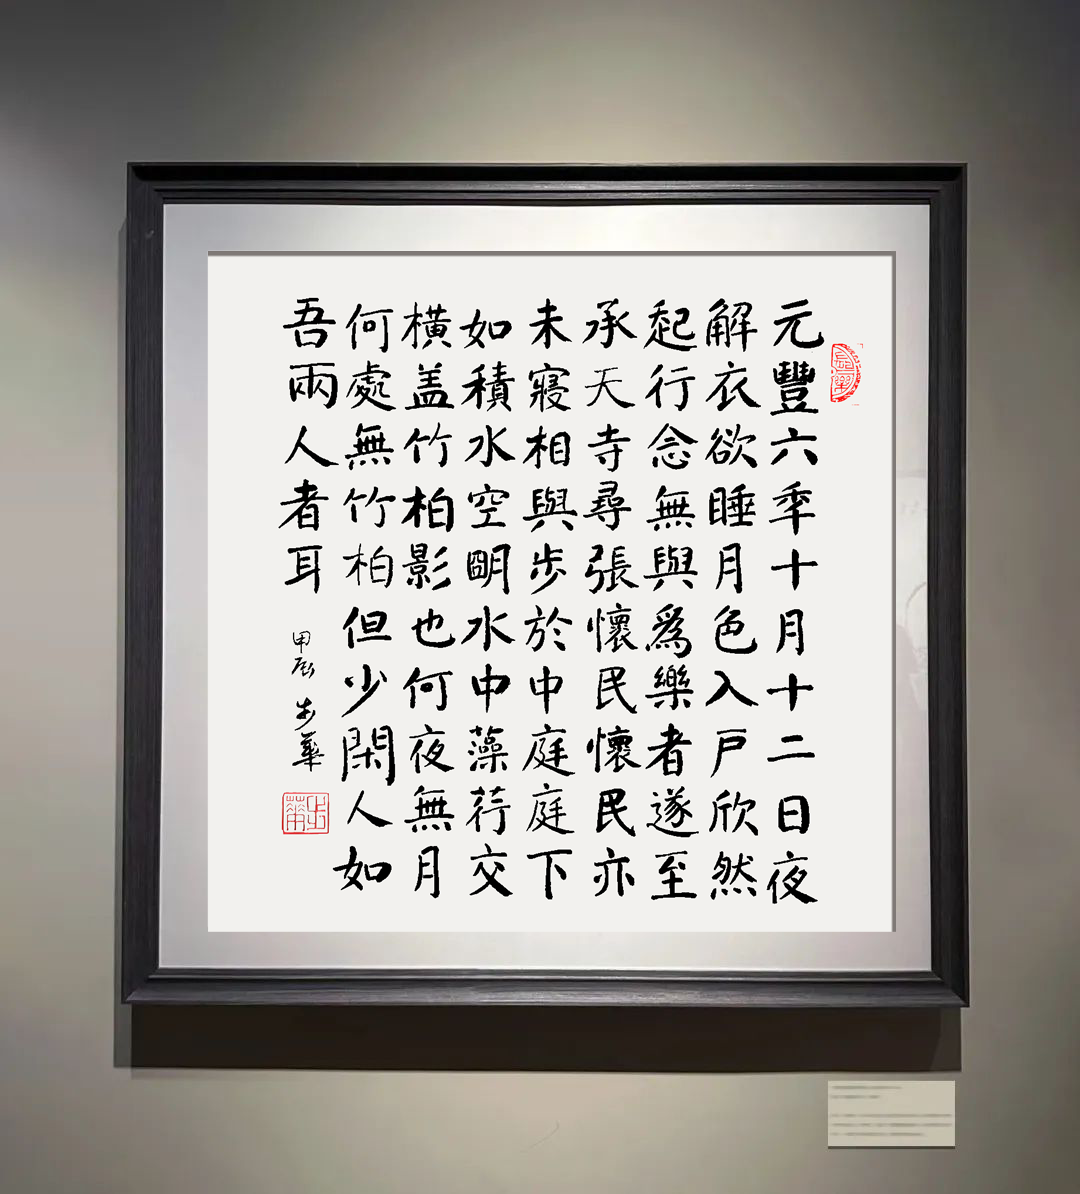 元豐六秊十月十二日夜
解衣欲睡月色入戶欣然
起行念無與爲樂者遂至
承天寺尋張懷民懷民亦
未寢相與步於中庭庭下
如積水空朙水中藻荇交
橫盖竹柏影也何夜無月
何處無竹柏但少閑人如
吾兩人者耳
甲辰 步華